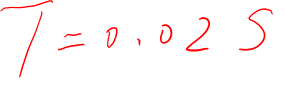 T = 0.02 S